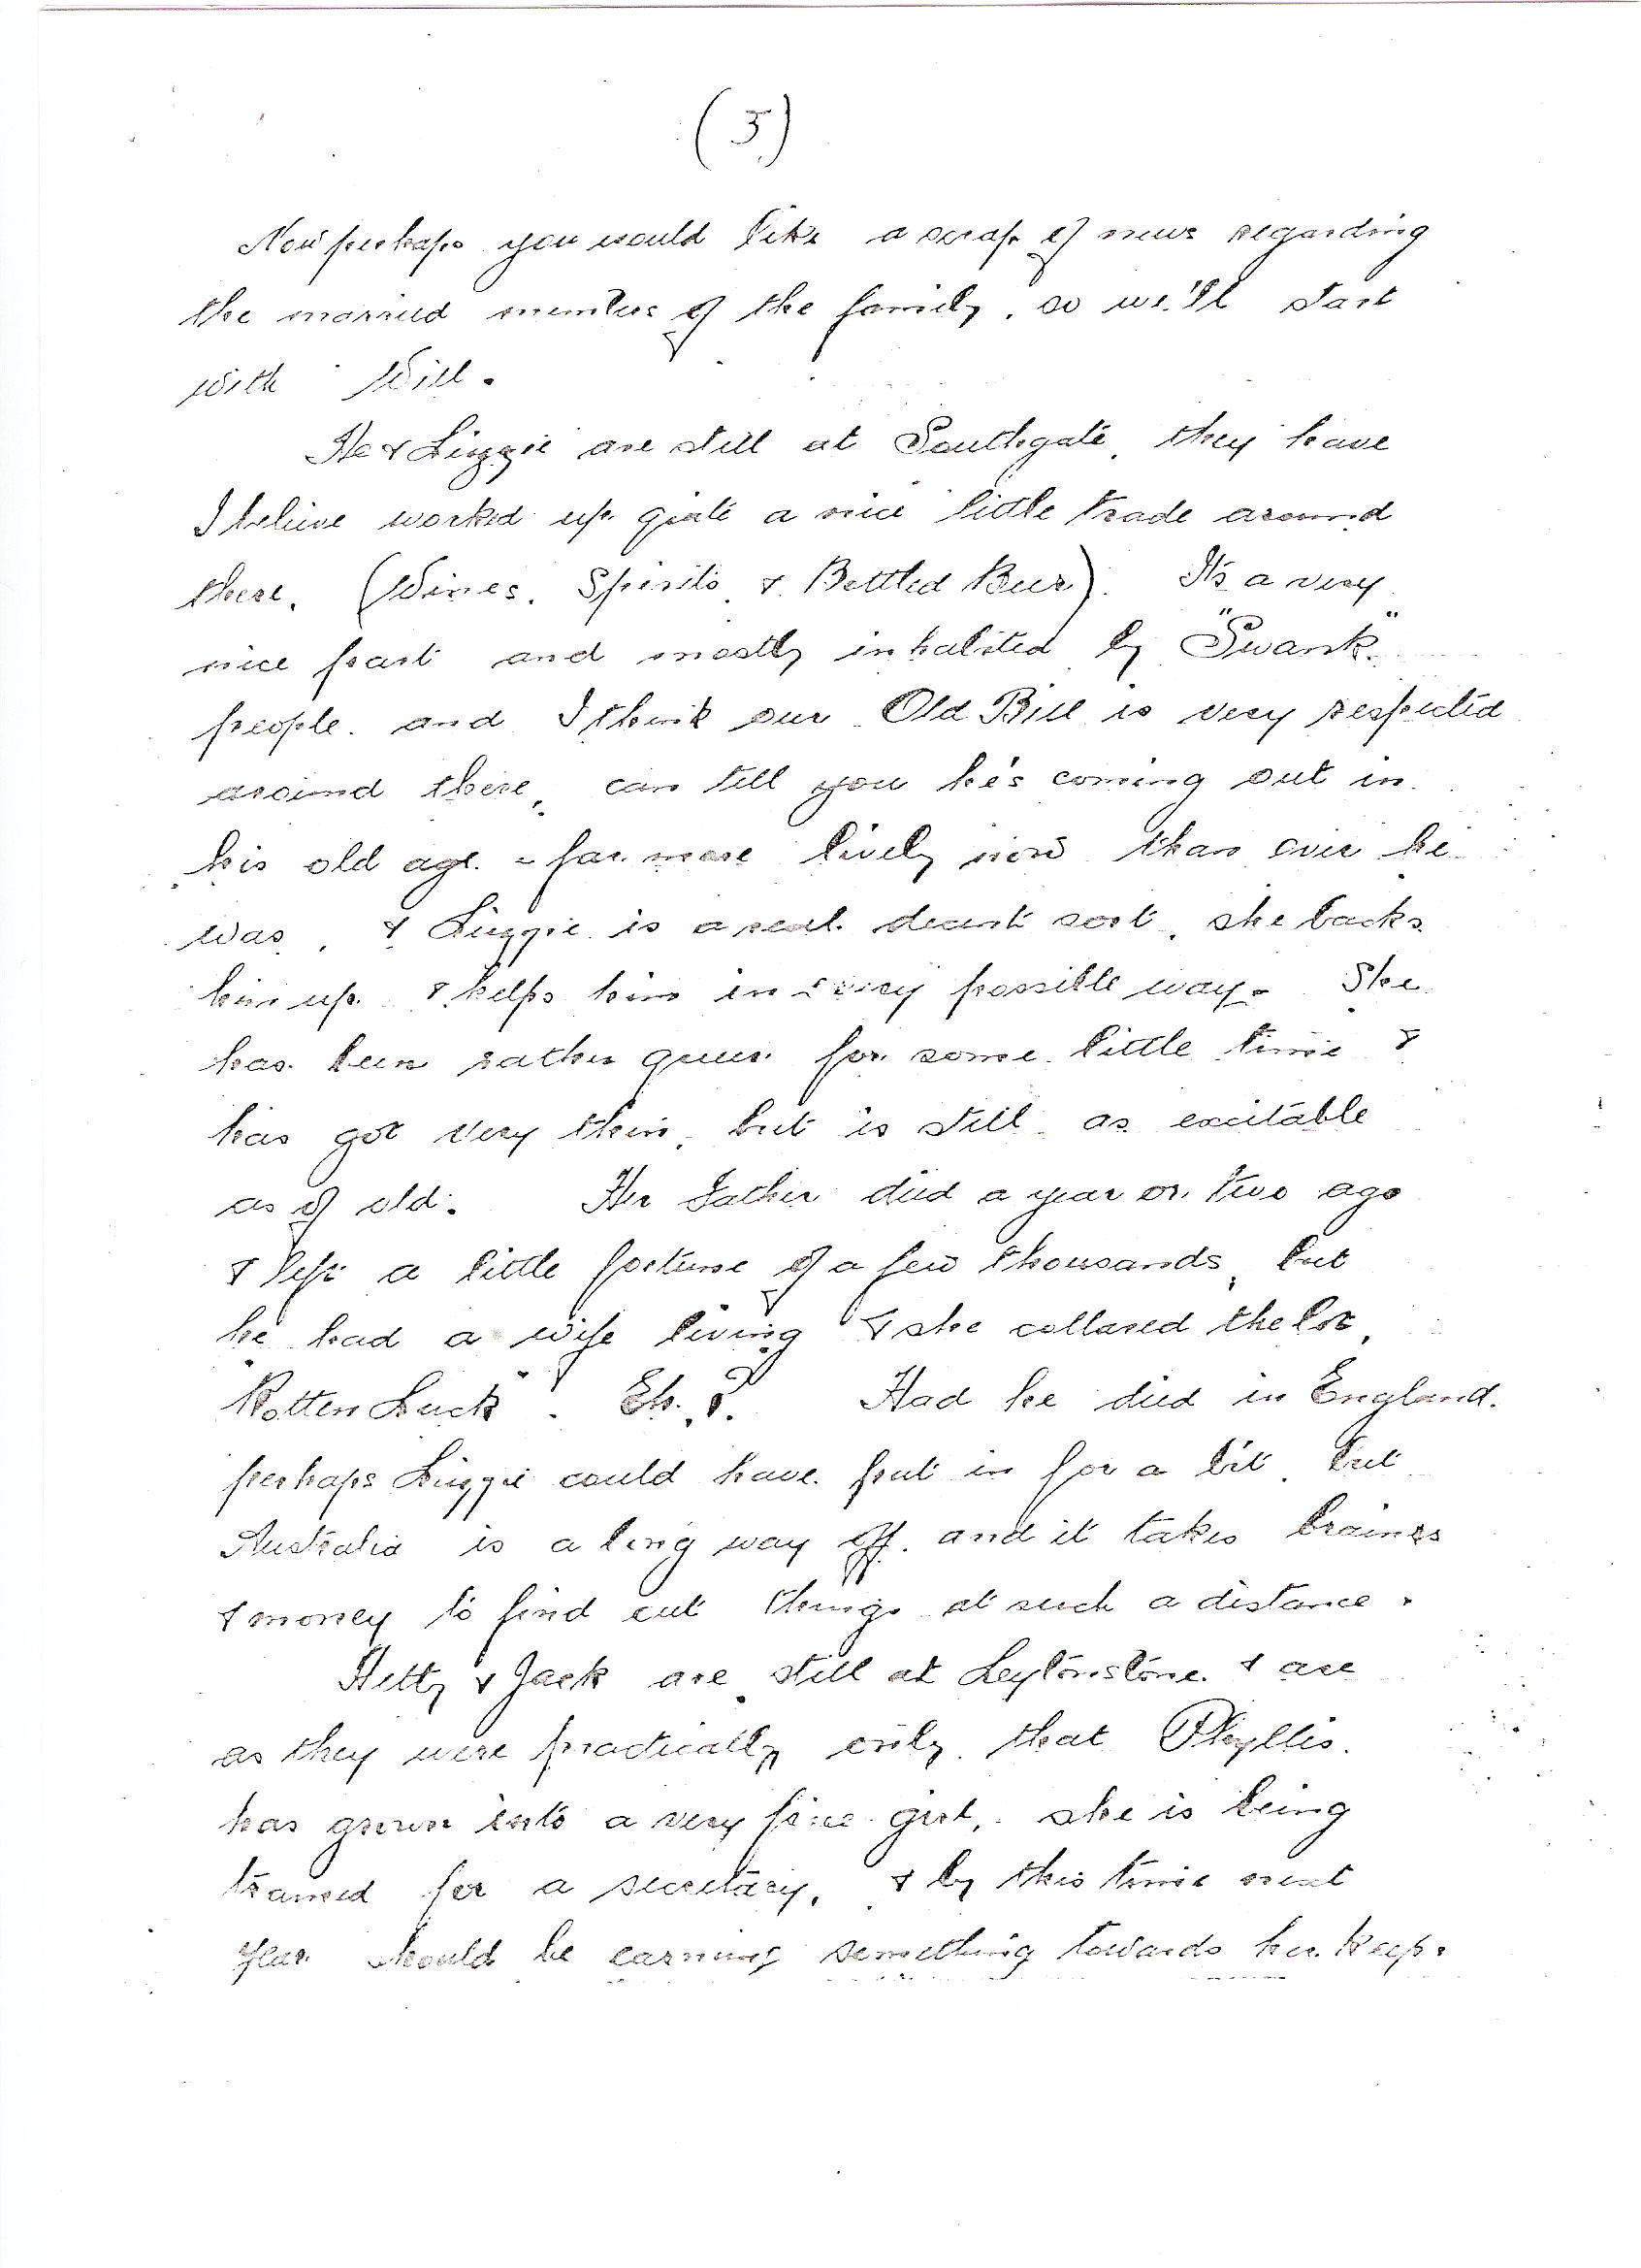 (5)
Now perhaps you would like a scrap of news regarding
the married members of the family, so we'll start
with Will.
He & Lizzie are still at Southgate, they have
I believe worked up quite a nice little trade around
there. (Wines. Spirits & Bottled Beer). It's a very
nice part and mostly inhabited by "Swank"
people. and I think our Old Bill is very respected
around there, can tell you he's coming out in
his old age - far more lively now than ever he
was, & Lizzie is a real decent sort, she backs
him up & helps him in every possible way. She
has been rather queer for some little time &
has got very thin, but is still as excitable
as of old. Her Father died a year or two ago
& left a little fortune of a few thousands, but
he had a wife living & she collared the lot,
"Rotten Luck". Eh.?. Had he died in England.
perhaps Lizzie could have put in for a bit, but
Australia is a long way off. and it takes brains
& money to find out things at such a distance.
Hetty & Jack are still at Leytonstone. & are
as they were practically only that Phyllis.
has grown into a very fine girl,. she is being
trained for a secretary, & by this time next
year should be earning something towards her keep.